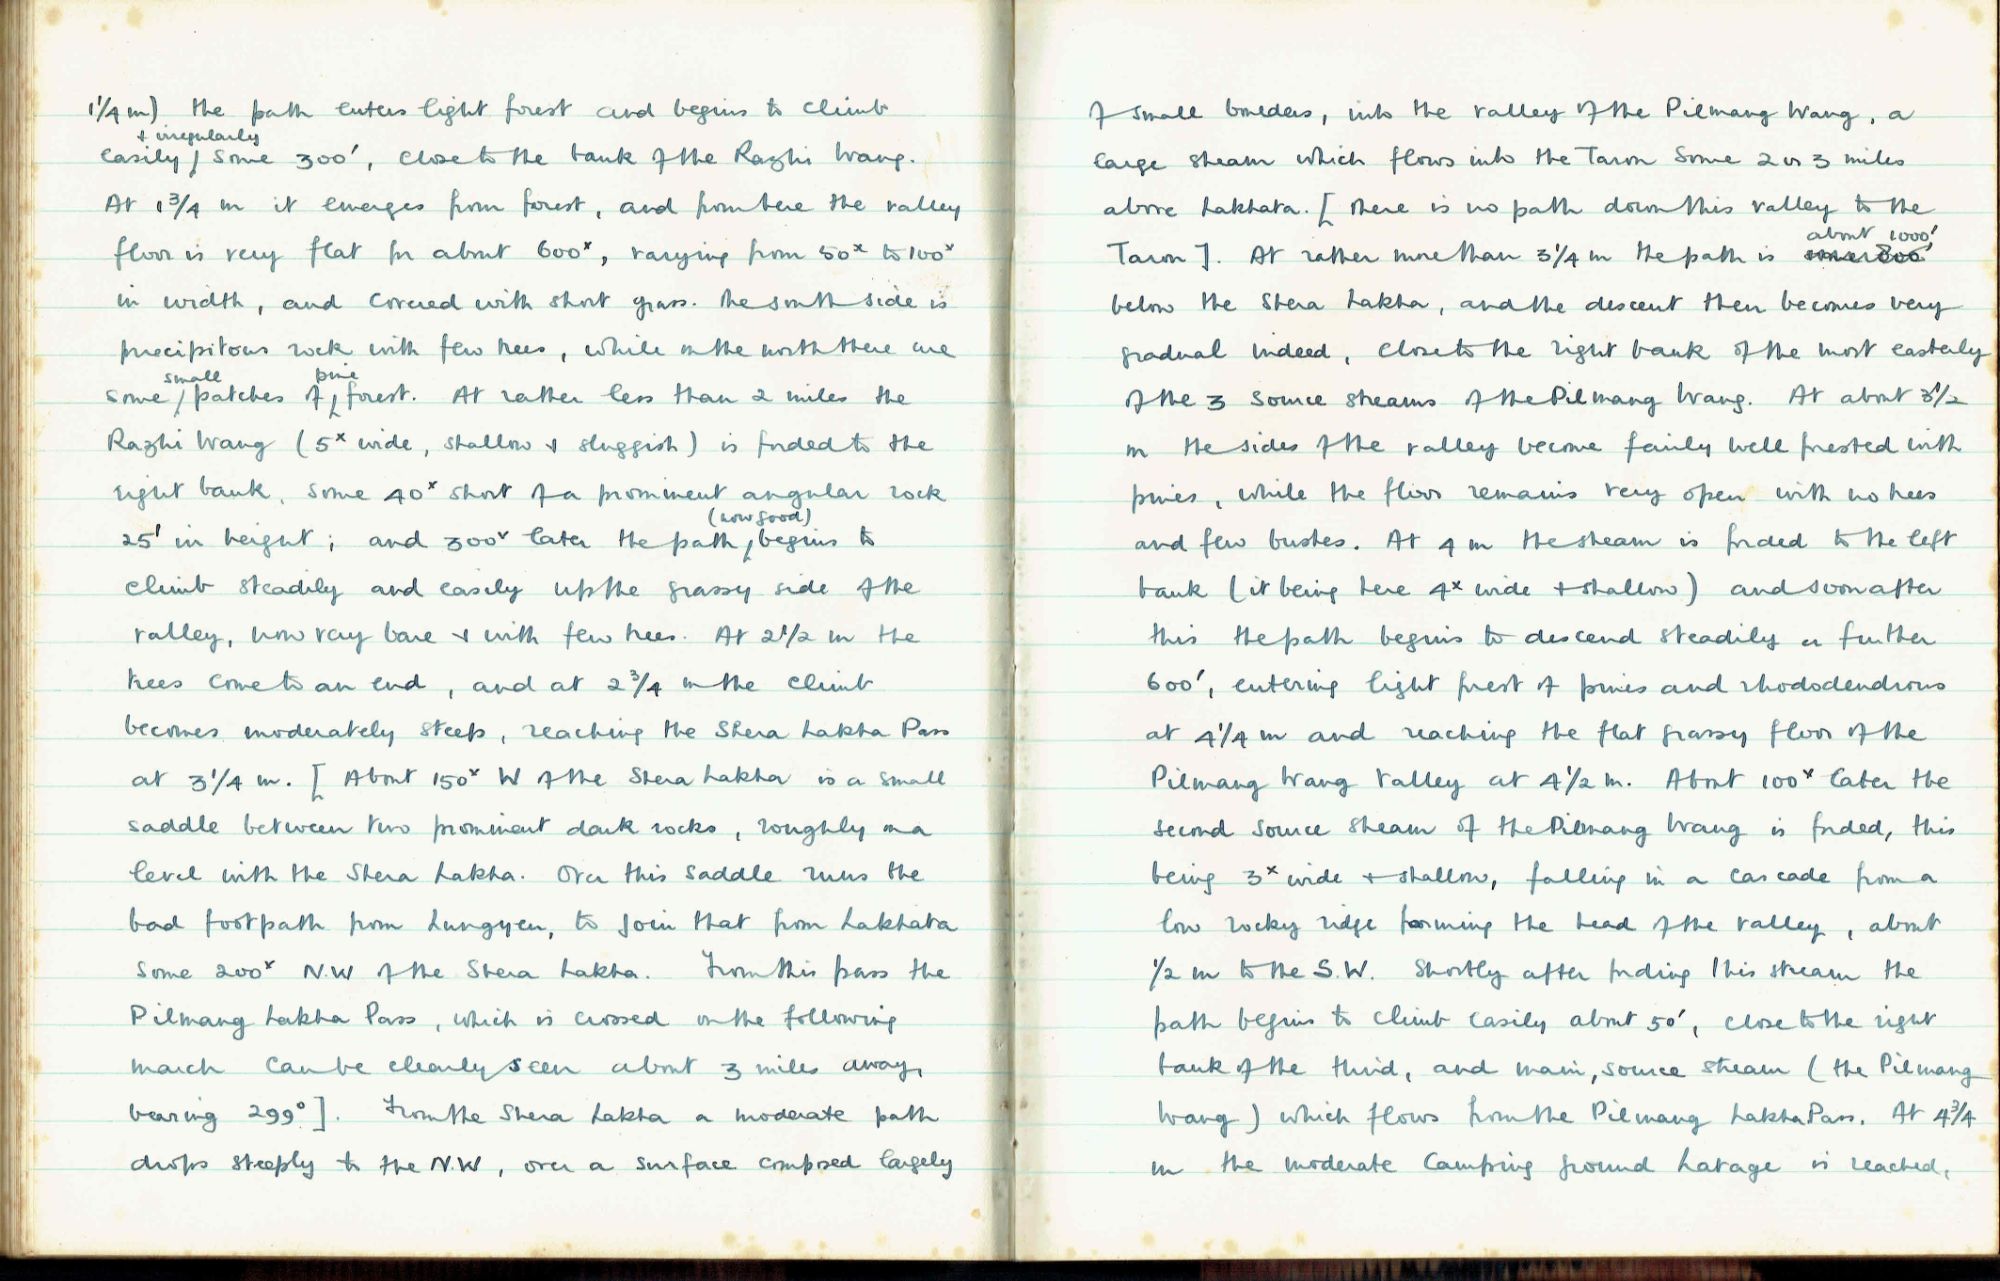 1¼ m) the path enters light forest and begins to climb
+ irregularly
easily, some 300', close to the bank of the Razhi Wang.
At 1¾ m it emerges from forest, and from here the valley
floor is very flat for about 600ˣ, varying from 50ˣ to 100ˣ
in width, and covered with short grass. The south side is
precipitous rock with few trees, while on the north there are
small pine
some patches of forest. At rather less than 2 miles the
Razhi Wang (5ˣ wide, shallow + sluggish) is forded to the
right bank, some 40ˣ short of a prominent angular rock
25' in height; and 300ˣ later the path begins to
(now good)
climb steadily and easily up the grassy side of the
valley, now very bare + with few trees. At 2½ m the
trees come to an end, and at 2¾ m the climb
becomes moderately steep, reaching the Shera Lakha Pass
at 3¼ m. [About 150ˣ W of the Shera Lakha is a small
saddle between two prominent dark rocks, roughly on a
level with the Shera Lakha. Over this saddle runs the
bad footpath from Lungyen, to join that from Lakhata
some 200ˣ N.W of the Shera Lakha. From this pass the
Pilmang Lakha Pass, which is crossed on the following
march can be clearly seen about 3 miles away,
bearing 299°]. From the Shera Lakha a moderate path
drops steeply to the N.W, over a surface composed largely
of small boulders, into the valley of the Pilmang Wang, a
large stream which flows into the Taron some 2 or 3 miles
above Lakhata. [There is no path down this valley to the
about 1000'
Taron]. At rather more than 3¼ m the path is
below the Shera Lakha, and the descent then becomes very
gradual indeed, close to the right bank of the most easterly
of the 3 source streams of the Pilmang Wang. At about 3½
m the sides of the valley become fairly well forested with
pines, while the floor remains very open with no trees
and few bushes. At 4 m the stream is forded to the left
bank (it being here 4ˣ wide + shallow) and soon after
this the path begins to descend steadily a further
600', entering light forest of pines and rhododendrons
at 4¼ m and reaching the flat grassy floor of the
Pilmang Wang valley at 4½ m. About 100ˣ later the
second source stream of the Pilmang Wang is forded, this
being 3ˣ wide + shallow, falling in a cascade from a
low rocky ridge forming the head of the valley, about
½ m to the S.W. Shortly after fording this stream the
path begins to climb easily about 50', close to the right
bank of the third, and main, source stream (the Pilmang
Wang) which flows from the Pilmang Lakha Pass. At 4¾
m the moderate camping ground Latage is reached,